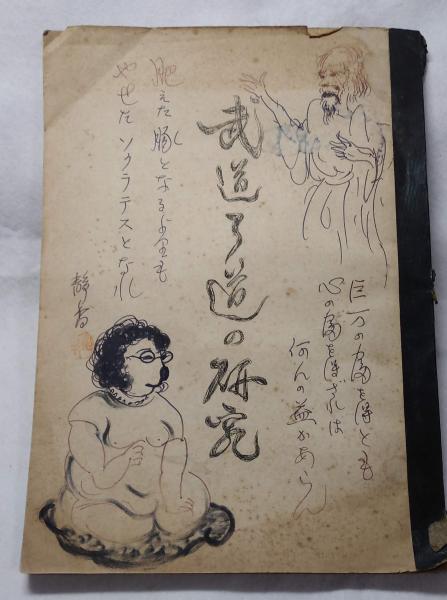 巨万の富を得とも
心の富を得ざれば
何んの益かあらん
武道弓道の研究
肥えた豚となるよりも
やせたソクラテスとなれ